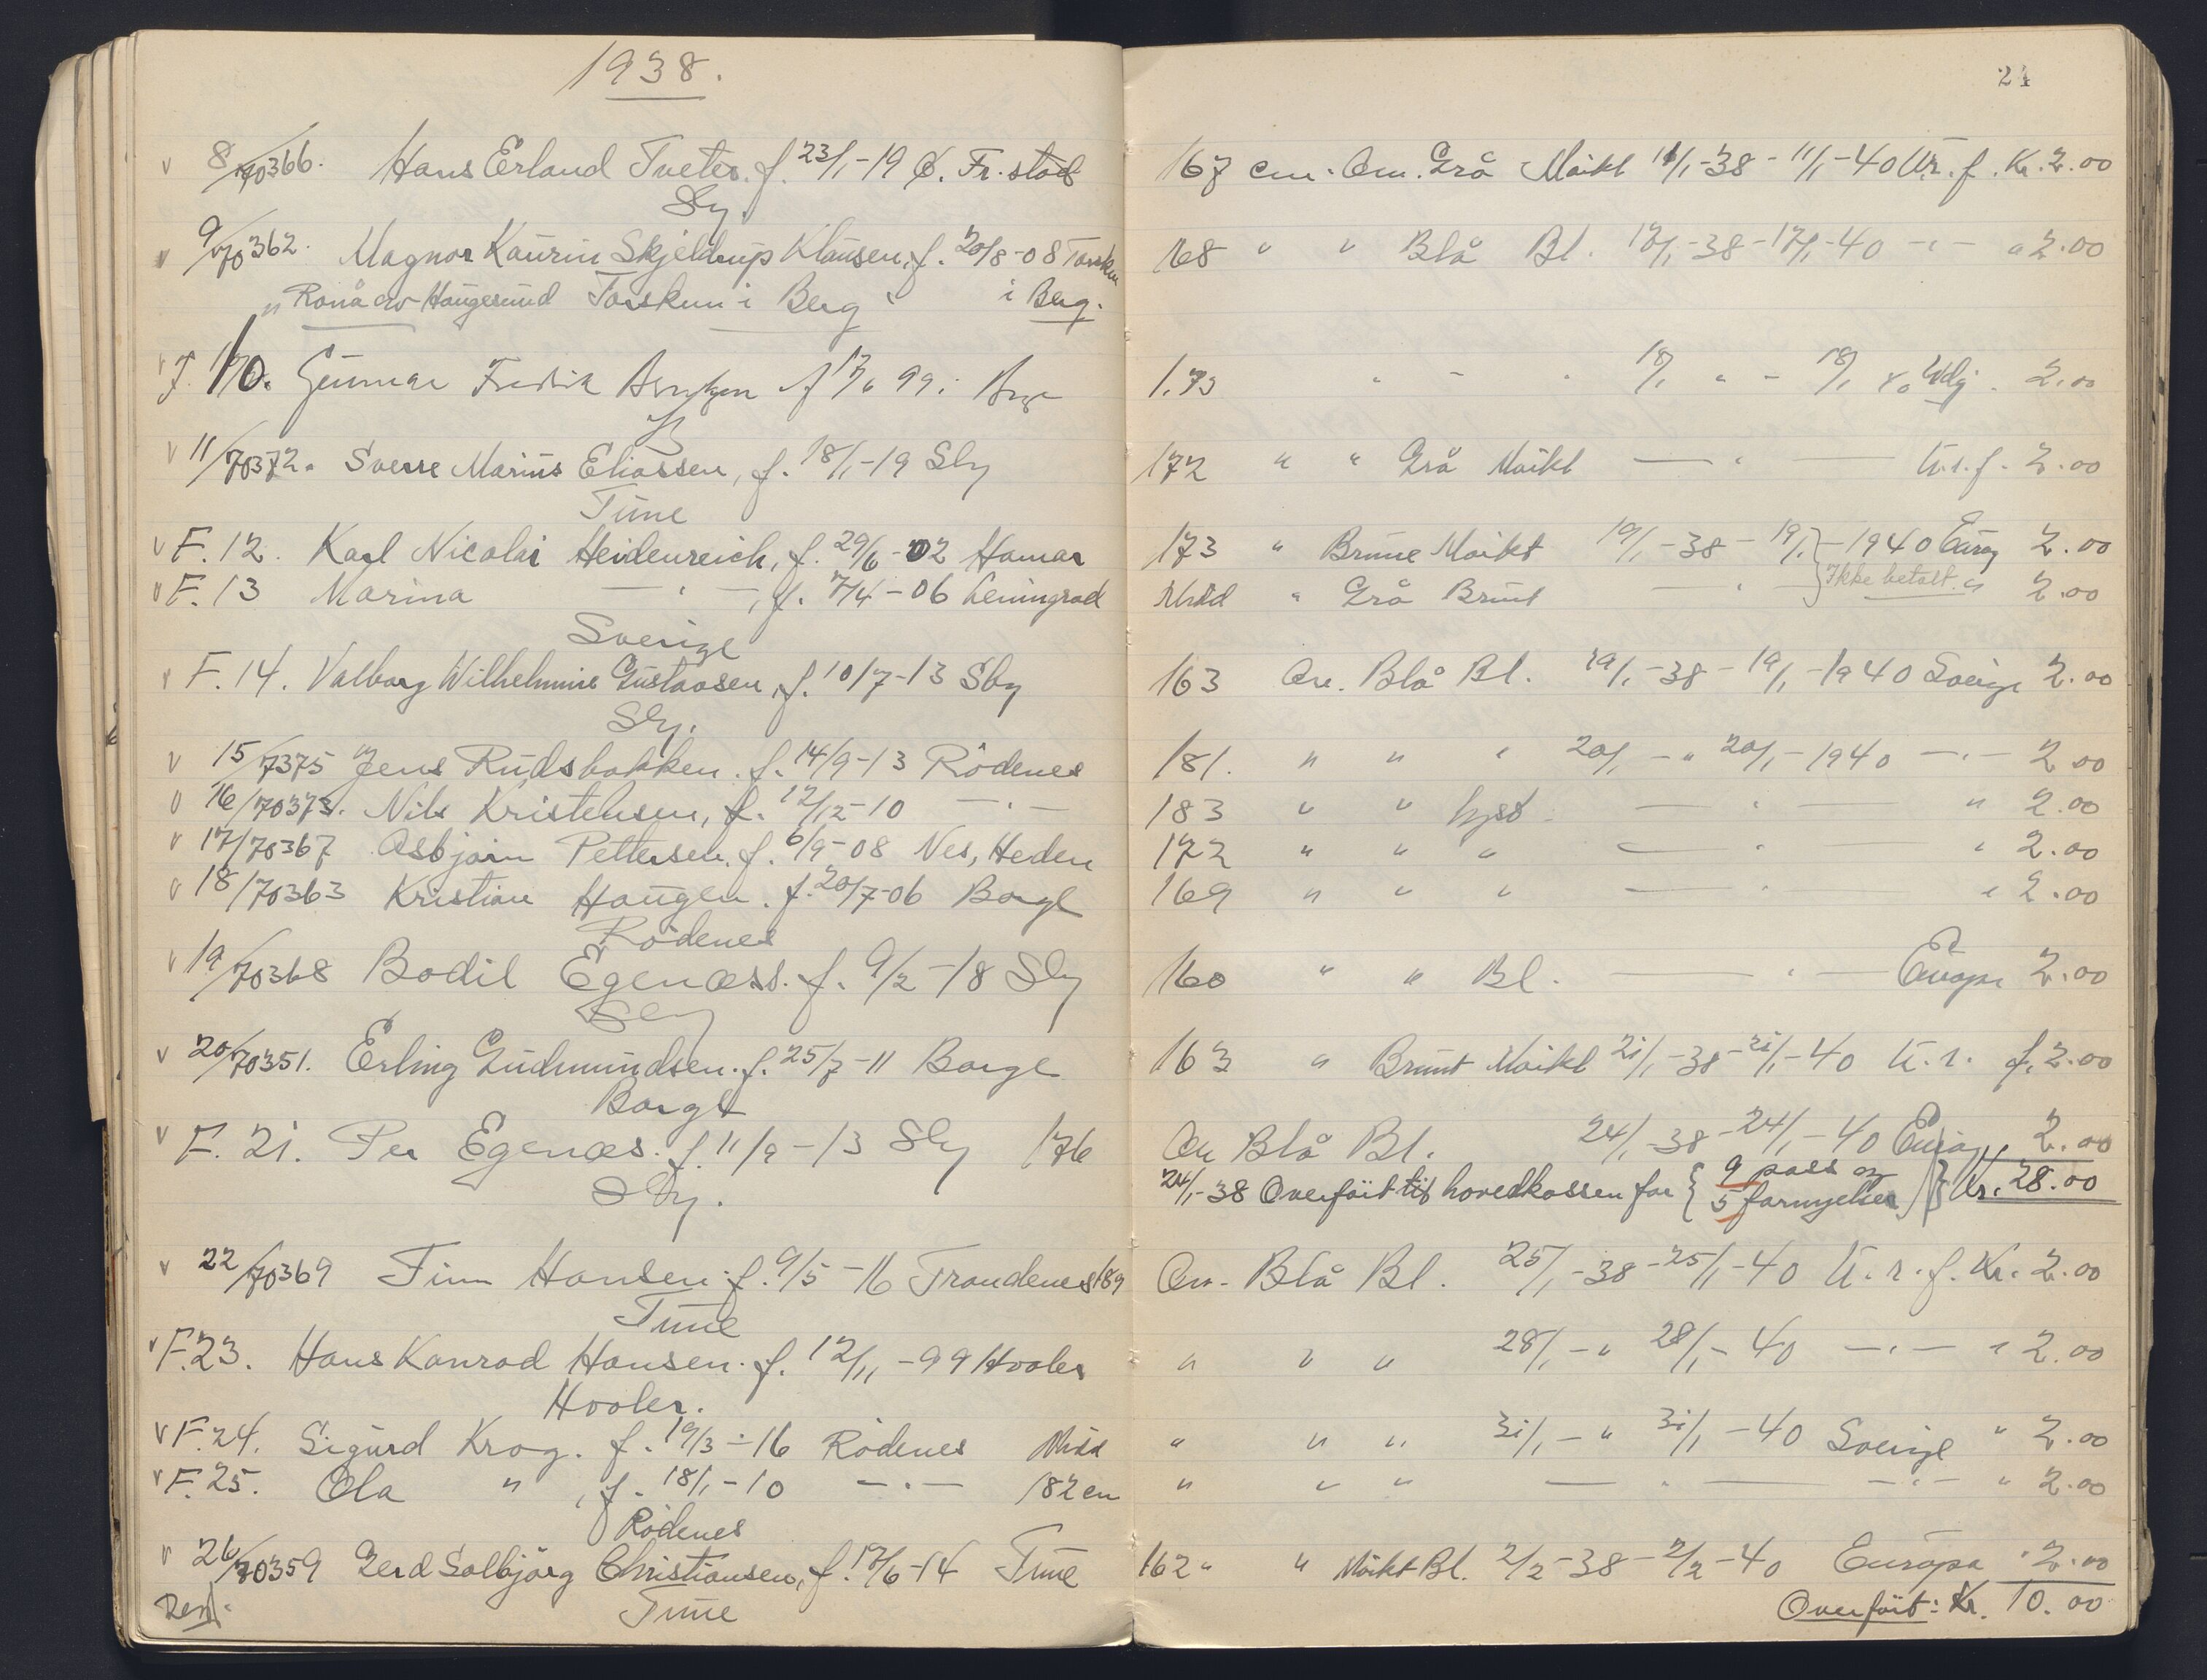 1938.
24
v 8/70366. Hans Erland Tveter. f. 23/1-19 Fr.stad 167 cm. Ov. Grå Mörkt 11/1-38 - 11/1-40 U.r.f. Kr. 2.00
Sby.
v 9/70362. Magnor Kaurin Skjeldrup Klausen, f. 20/8-08 Torsken 168 " " Blå Bl. -38 - -40 -"- " 2.00
"Ronå av Haugesund Torsken i Berg i Berg.
v 10. Gunnar Fredrik f 99. 1.73 " - " 18/1 " - 18/1 40 Udg. 2.00
v 11/70372. Sverre Marius Eliassen, f. 18/1-19 Sby 172 " " Grå Mörkt — " — U.r.f. 2.00
Tune
v F. 12. Karl Nicolai Heidenreich, f. 29/6-02 Hamar 173 " Brune Mörkt 19/1-38 - 19/1 - 1940 Europ 2.00
v F. 13 Marina — " —, f. 7/4-06 Leningrad Midd " Grå Brunt — " — Ikke betalt. " 2.00
Sverige
v F. 14. Valborg Wilhelmine Gustavsen, f. 10/7-13 Sby 163 Ov. Blå Bl. 19/1-38 - 19/1-1940 Sverige 2.00
Sby.
v 15/7375 Jens Rudsbakken. f. 14/9-13 Rödenes 181. " " " 20/1 - " 20/1-1940 -"- 2 00
v 16/70373. Nils Kristensen, f. 12/12-10 -"- 183 " " lyst — " — " 2.00
v 17/70367 Asbjörn Pettersen. f. 6/9-08 Nes, Hedem 172 " " " — " — " 2.00
v 18/70363 Kristian Haugen. f. 20/7-06 Borge 169 " " " — " — " 2.00
Rödenes
v 19/70368 Bodil Egenæss. f. 9/2-18 Sby 160 " " Bl. — " — Europa 2.00
Sby
v 20/70351. Erling Gudmundsen. f. 25/7-11 Borge 163 " Brunt Mörkt 21/1-38 - 21/1-40 U.r. f. 2.00
Borge
v F. 21. Per Egenæs. f. 11/9-13 Sby 176 Ov Blå Bl. 24/1-38 - 24/1-40 Europ 2.00
Sby. 24/1-38 Overfört til hovedkassen for { 9 pass og 5 fornyelser } Kr. 28.00
v 22/70369 Finn Hansen. f. 9/5-16 Trondenes 189 Ov. Blå Bl. 25/1-38 - 25/1-40 U.r.f. Kr. 2.00
Tune
v F. 23. Hans Konrad Hansen. f. 12/11-99 Hvaler " " " 28/1 - " 28/1-40 -"- " 2.00
Hvaler.
v F. 24. Sigurd Krog. f. 19/3-16 Rödenes Midd " " " 31/1 - " 31/1-40 Sverige " 2.00
v F. 25. Ola " , f. 18/1-10 -"- 182 cm " " " — " — -"- " 2.00
Rödenes
v 26/70359 Gerd Solbjörg Christiansen, f. 17/6-14 Tune 162 " " Mörkt Bl. 2/2-38 - 2/2-40 Europa " 2.00
Tune Overfört: Kr. 10.00